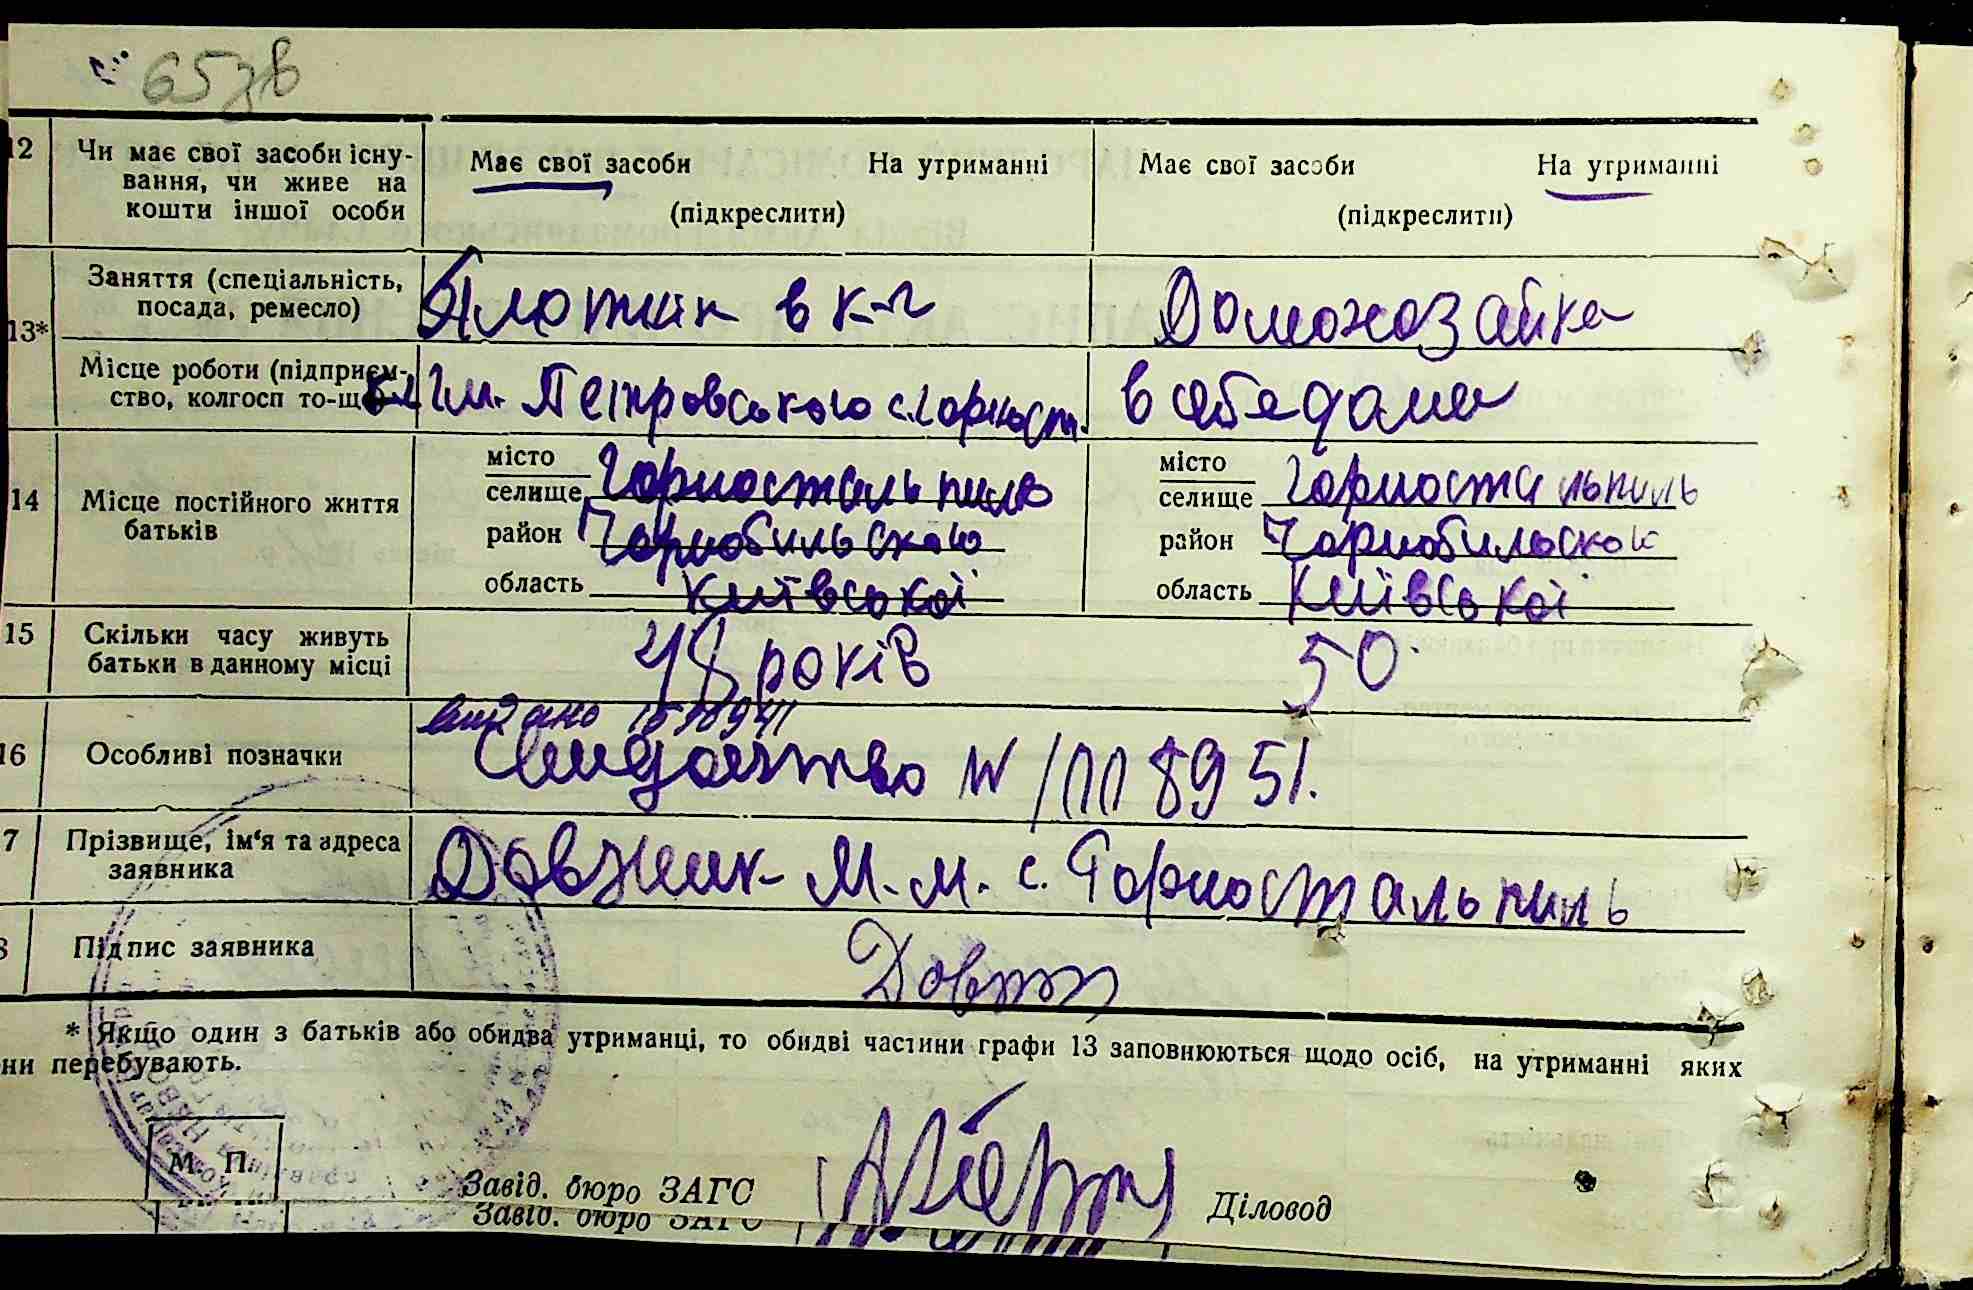 65зв
12 Чи має свої засоби існу- Має свої засоби На утриманні Має свої засоби На утриманні
вання, чи живе на
кошти іншої особи (підкреслити) (підкреслити)
13* Заняття (спеціальність, Плотник в к-г Домохозайка
посада, ремесло)
Місце роботи (підприєм- к-г Ім. Петровського с. Горност. в себе дома
ство, колгосп то-що
14 Місце постійного життя місто Горностальпиль місто Горностальпиль
батьків селище селище
район Чорнобильского район Чорнобильског
область Київської область Київської
15 Скільки часу живуть 48 років 50
батьки в данному місці
видано 15 10 941
16 Особливі позначки Свидоцтво N 1008951.
7 Прізвище, ім'я та адреса Довжик М. М. с. Горностальпиль
заявника
8 Підпис заявника
* Якщо один з батьків або обидва утриманці, то обидві частини графи 13 заповнюються щодо осіб, на утриманні яких
ни перебувають.
М. П.
Завід. бюро ЗАГС Діловод
Завід. бюро ЗАГС